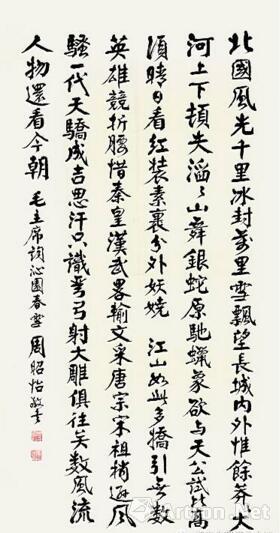 北國風光千里冰封萬里雪飄望長城内外惟餘莽大
河上下頓失滔々山舞銀蛇原馳蠟象欲与天公試比高
須晴日看紅裝素裹分外妖嬈 江山如此多嬌引無數
英雄競折腰惜秦皇漢武畧輸文采唐宗宋祖稍遜風
騷一代天驕成吉思汗只識彎弓射大雕俱往矣數風流
人物還看今朝 毛主席詞沁園春雪 周昭怡敬書